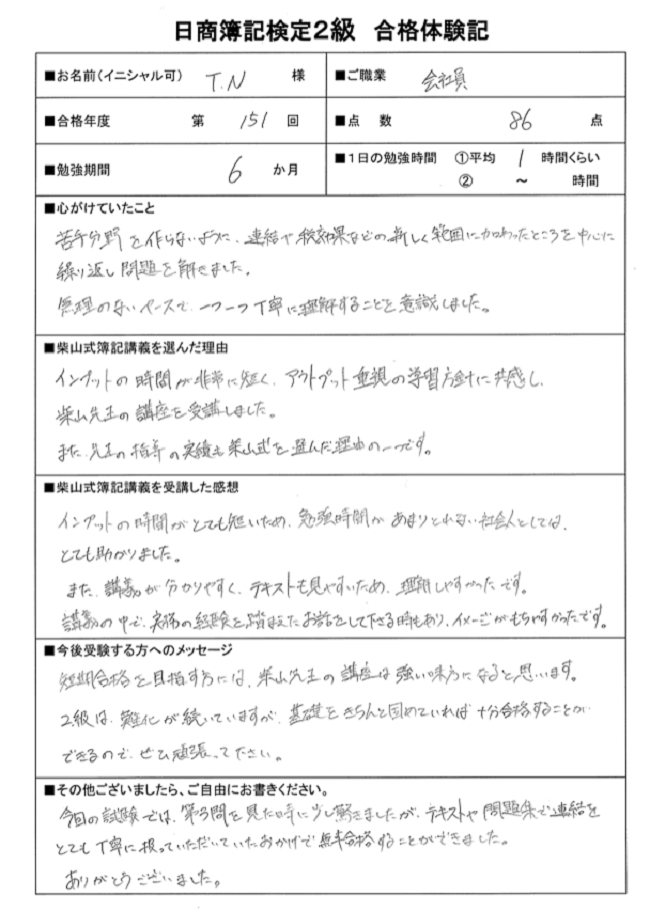 日商簿記検定2級 合格体験記
■お名前(イニシャル可) T.N 様
■ご職業 会社員
■合格年度 第 151 回
■点 数 86 点
■勉強期間 6 か月
■1日の勉強時間 ①平均 1 時間くらい
② ~ 時間
■心がけていたこと
苦手分野を作らないように、連結や税効果などの新しく範囲に加わったところを中心に
繰り返し問題を解きました。
無理のないペースで、一つ一つ丁寧に理解することを意識しました。
■柴山式簿記講義を選んだ理由
インプットの時間が非常に短く、アウトプット重視の学習方針に共感し、
柴山先生の講座を受講しました。
また、先生の指導の実績も柴山式を選んだ理由の一つです。
■柴山式簿記講義を受講した感想
インプットの時間がとても短いため、勉強時間があまりとれない社会人としては、
とても助かりました。
また、講義が分かりやすく、テキストも見やすいため、理解しやすかったです。
講義の中で、実務の経験を踏まえたお話をして下さる時もあり、イメージがもちやすかったです。
■今後受験する方へのメッセージ
短期合格を目指す方には、柴山先生の講座は強い味方になると思います。
2級は、難化が続いていますが、基礎をきちんと固めていれば十分合格することが
できるので、ぜひ頑張って下さい。
■その他ございましたら、ご自由にお書きください。
今回の試験では、第3問を見た時に少し驚きましたが、テキストや問題集で連結を
とても丁寧に扱っていただいていたおかげで無事合格することができました。
ありがとうございました。